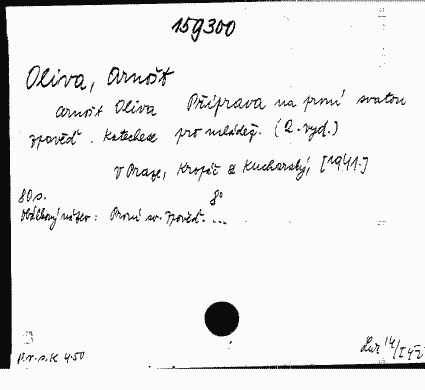 159300
Oliva, Arnošt
Arnošt Oliva Příprava na první svatou
zpověď. Katechese pro mládež. (2. vyd.)
V Praze, Kropáč & Kucharský, [1941.]
80 s. 8°
Obálkový název: První sv. zpověď. ...
K 4.50
14/I 42